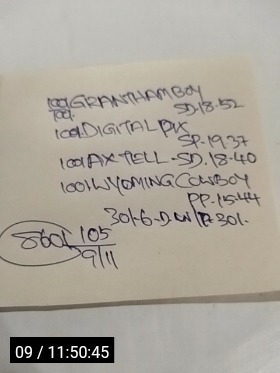 100/GRANTHAM BOY
SD.18-52
100/.DIGITAL
SP.19.37
100/AXTELL-SD.18-40
100/WYOMING COWBOY
PP.15-44
301-6-D
860/ 105
9/11
09 / 11:50:45